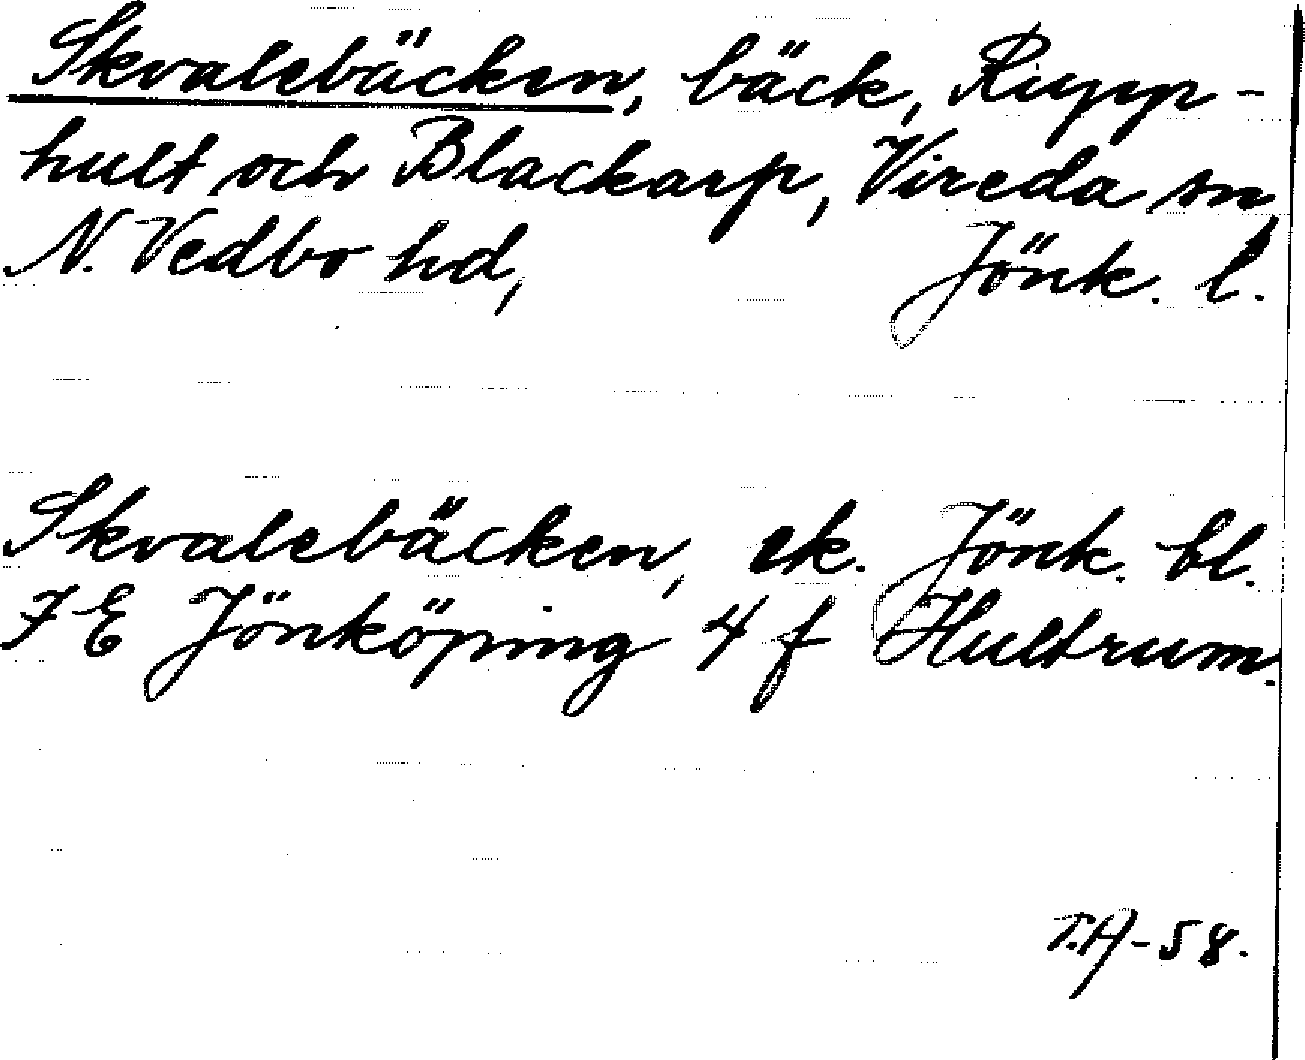 Skvalebäcken, bäck, Rupp-
hult och Blackarp, Vireda sn
N. Vedbo hd, Jönk. l.
Skvalebäcken, ek. Jönk. bl.
7 E Jönköping 4 f Hultrum.
T.A-58.